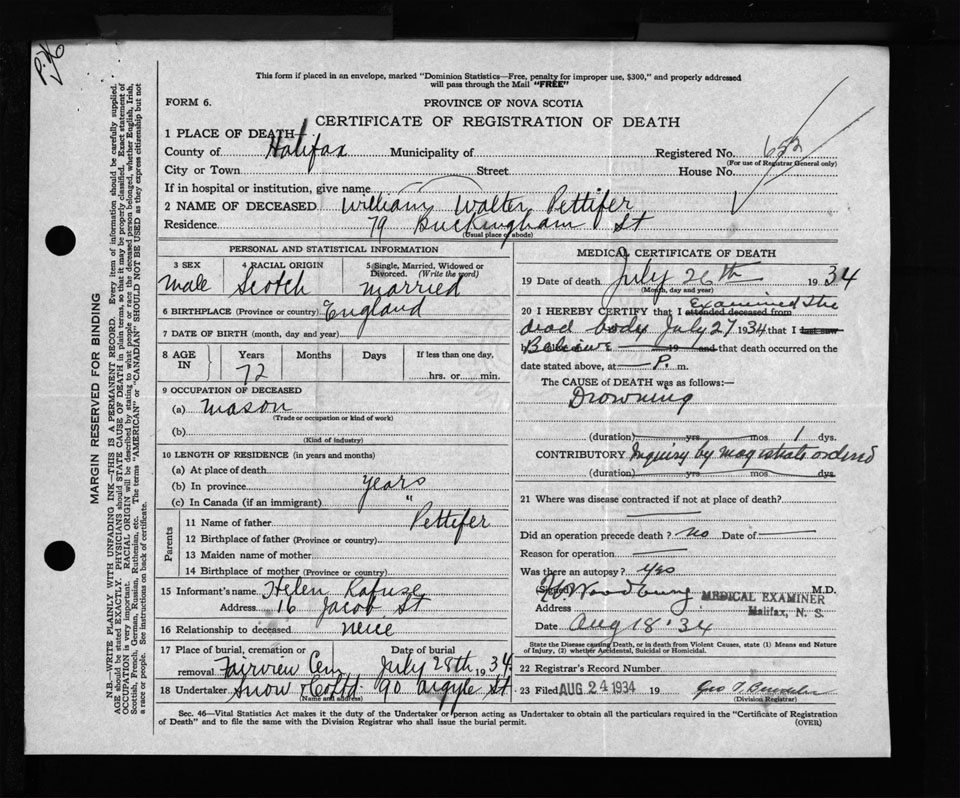 This form if placed in an envelope, marked "Dominion Statistics—Free, penalty for improper use, $300," and properly addressed
will pass through the Mail "FREE"
FORM 6. PROVINCE OF NOVA SCOTIA
CERTIFICATE OF REGISTRATION OF DEATH
1 PLACE OF DEATH
County of Halifax Municipality of Registered No. 652
(For use of Registrar General only)
City or Town Street House No.
If in hospital or institution, give name
2 NAME OF DECEASED William Walter Pettifer
Residence 79 Buckingham St
(Usual place of abode)
PERSONAL AND STATISTICAL INFORMATION
3 SEX 4 RACIAL ORIGIN 5 Single, Married, Widowed or
Divorced. (Write the word)
Male Scotch Married
6 BIRTHPLACE (Province or country) England
7 DATE OF BIRTH (month, day and year)
8 AGE IN Years Months Days If less than one day,
72 hrs. or min.
9 OCCUPATION OF DECEASED
(a) Mason
(Trade or occupation or kind of work)
(b)
(Kind of industry)
10 LENGTH OF RESIDENCE (in years and months)
(a) At place of death
(b) In province years
(c) In Canada (if an immigrant) "
Parents
11 Name of father Pettifer
12 Birthplace of father (Province or country)
13 Maiden name of mother
14 Birthplace of mother (Province or country)
15 Informant's name Helen Rafuse
Address 16 Jacob St
16 Relationship to deceased neice
17 Place of burial, cremation or removal Date of burial
Fairview Cem July 28th 1934
18 Undertaker Snow & Co Ltd 90 Argyle St
(Name and address)
MEDICAL CERTIFICATE OF DEATH
19 Date of death July 26th 1934
(Month, day and year)
Examined the
20 I HEREBY CERTIFY that I attended deceased from
dead body July 27 1934 that I last saw
h Believe 19 and that death occurred on the
date stated above, at P. m.
The CAUSE of DEATH was as follows:—
Drowning
(duration) yrs mos 1 dys.
CONTRIBUTORY Inquiry by magistrate ordered
(duration) yrs mos. dys.
21 Where was disease contracted if not at place of death?
Did an operation precede death? no Date of
Reason for operation
Was there an autopsy? Yes
(Signed) M.D.
MEDICAL EXAMINER
Address Halifax, N. S.
Date Aug 18 '34
State the Disease causing Death, or in death from Violent Causes, state (1) Means and Nature
of Injury, (2) whether Accidental, Suicidal or Homicidal.
22 Registrar's Record Number
23 Filed AUG 24 1934 19 Geo
(Division Registrar)
Sec. 46—Vital Statistics Act makes it the duty of the Undertaker or person acting as Undertaker to obtain all the particulars required in the "Certificate of Registration
of Death" and to file the same with the Division Registrar who shall issue the burial permit. (OVER)
MARGIN RESERVED FOR BINDING
N.B.—WRITE PLAINLY WITH UNFADING INK—THIS IS A PERMANENT RECORD. Every item of information should be carefully supplied.
AGE should be stated EXACTLY. PHYSICIANS should STATE CAUSE OF DEATH in plain terms, so that it may be properly classified. Exact statement of
OCCUPATION is very important. RACIAL ORIGIN will be described by stating to what people or race the deceased person belonged, whether English, Irish,
Scottish, French, German, Russian, Ruthenian, etc. The terms "AMERICAN" or "CANADIAN" SHOULD NOT BE USED as they express citizenship but not
a race or people. See instructions on back of certificate.